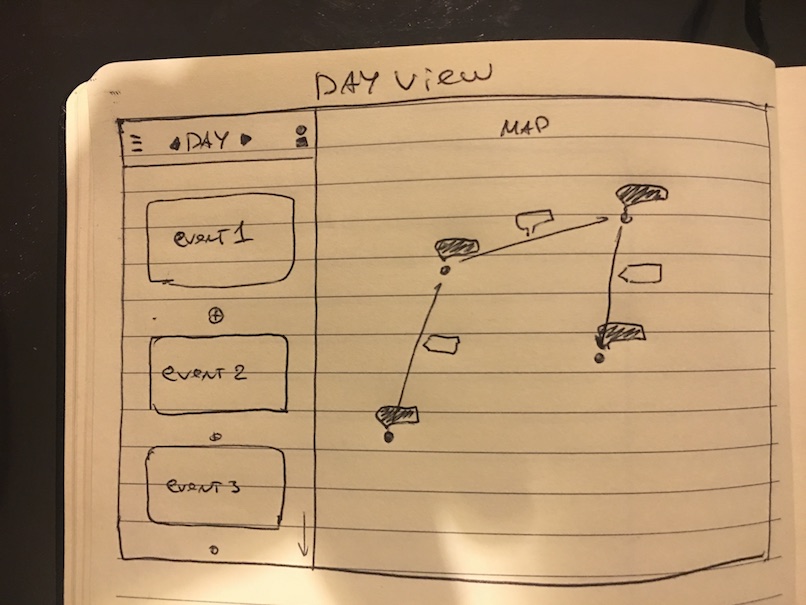 DAY view
DAY
MAP
event 1
event 2
event 3